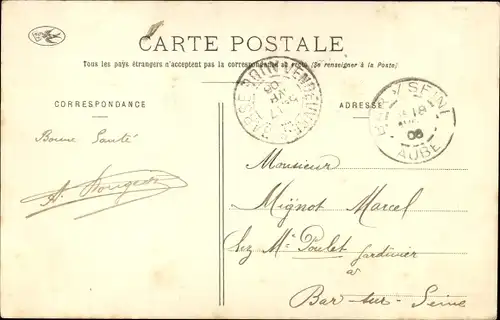 CARTE POSTALE
Tous les pays étrangers n'acceptent pas la correspondance au recto (Se renseigner à la Poste)
CORRESPONDANCE
ADRESSE
VENDEUVRE
08
BAR S/ SEINE
18
08
AUBE
Bonne Santé
Monsieur
Mignot Marcel
Chez Mr Poulet Jardinier
à
Bar-sur-Seine